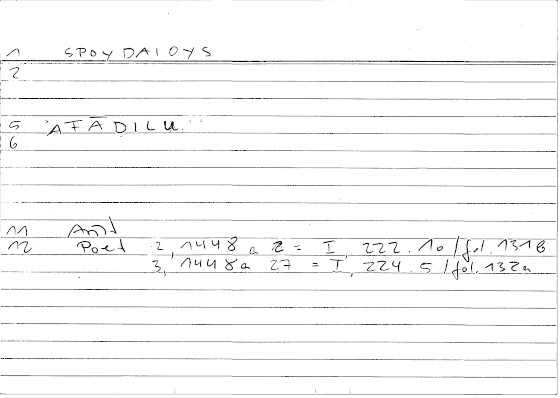 1 SPOYDAIOYS
2
5 'AFĀDILU
6
11 Arist
12 Poet 2, 1448 a 2 = I, 222.10 / fol. 131b
3, 1448 a 27 = I, 224.5 / fol. 132a